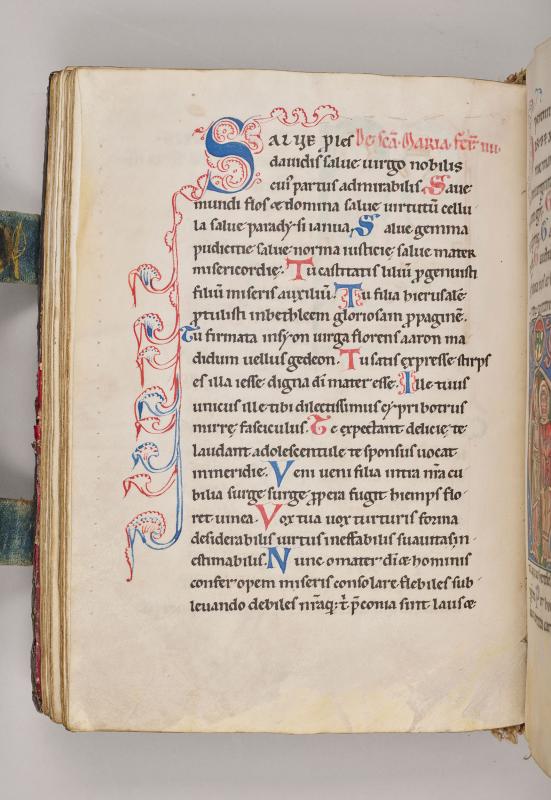 SALVE ꝓles De sc̄a Maria. fer̄ iiii.
dauidis salue uirgo nobilis
cui᷒ partus admirabilis. Saue
mundi flos & domina salue uirtutū cellu
la salue paradysi ianua. Salue gemma
pudicitie salue norma iusticie salue mater
misericordie. Tu castitatis liliū ꝓgenuisti
filiū miseris auxiliū. Tu filia hierusalē
ꝓtulisti inbethleem gloriosam ꝓpaginē.
Tu firmata insyon uirga florens aaron ma
didum uellus gedeon. Tu satis expresse stirps
es illa iesse digna dī mater esse. Ille tuus
unicus ille tibi dilectissimus cypri botrus
mirre fasciculus. Te expectant delicie te
laudant adolescentule te sponsus uocat
inmeridie. Veni ueni filia intra nr̄a cu
bilia surge surge ꝓpera fugit hiemps flo
ret uinea. Vox tua uox turturis forma
desiderabilis uirtus ineffabilis suauitas in
estimabilis. Nunc o mater di & hominis
confer opem miseris consolare flebiles sub
leuando debiles nr̄aq; t̄ p̄conia sint laus &